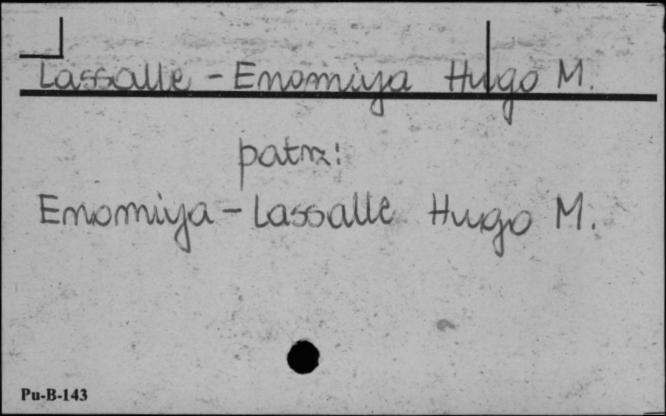 Lassalle - Enomiya Hugo M.
patrz:
Enomiya - Lassalle Hugo M.
Pu-B-143